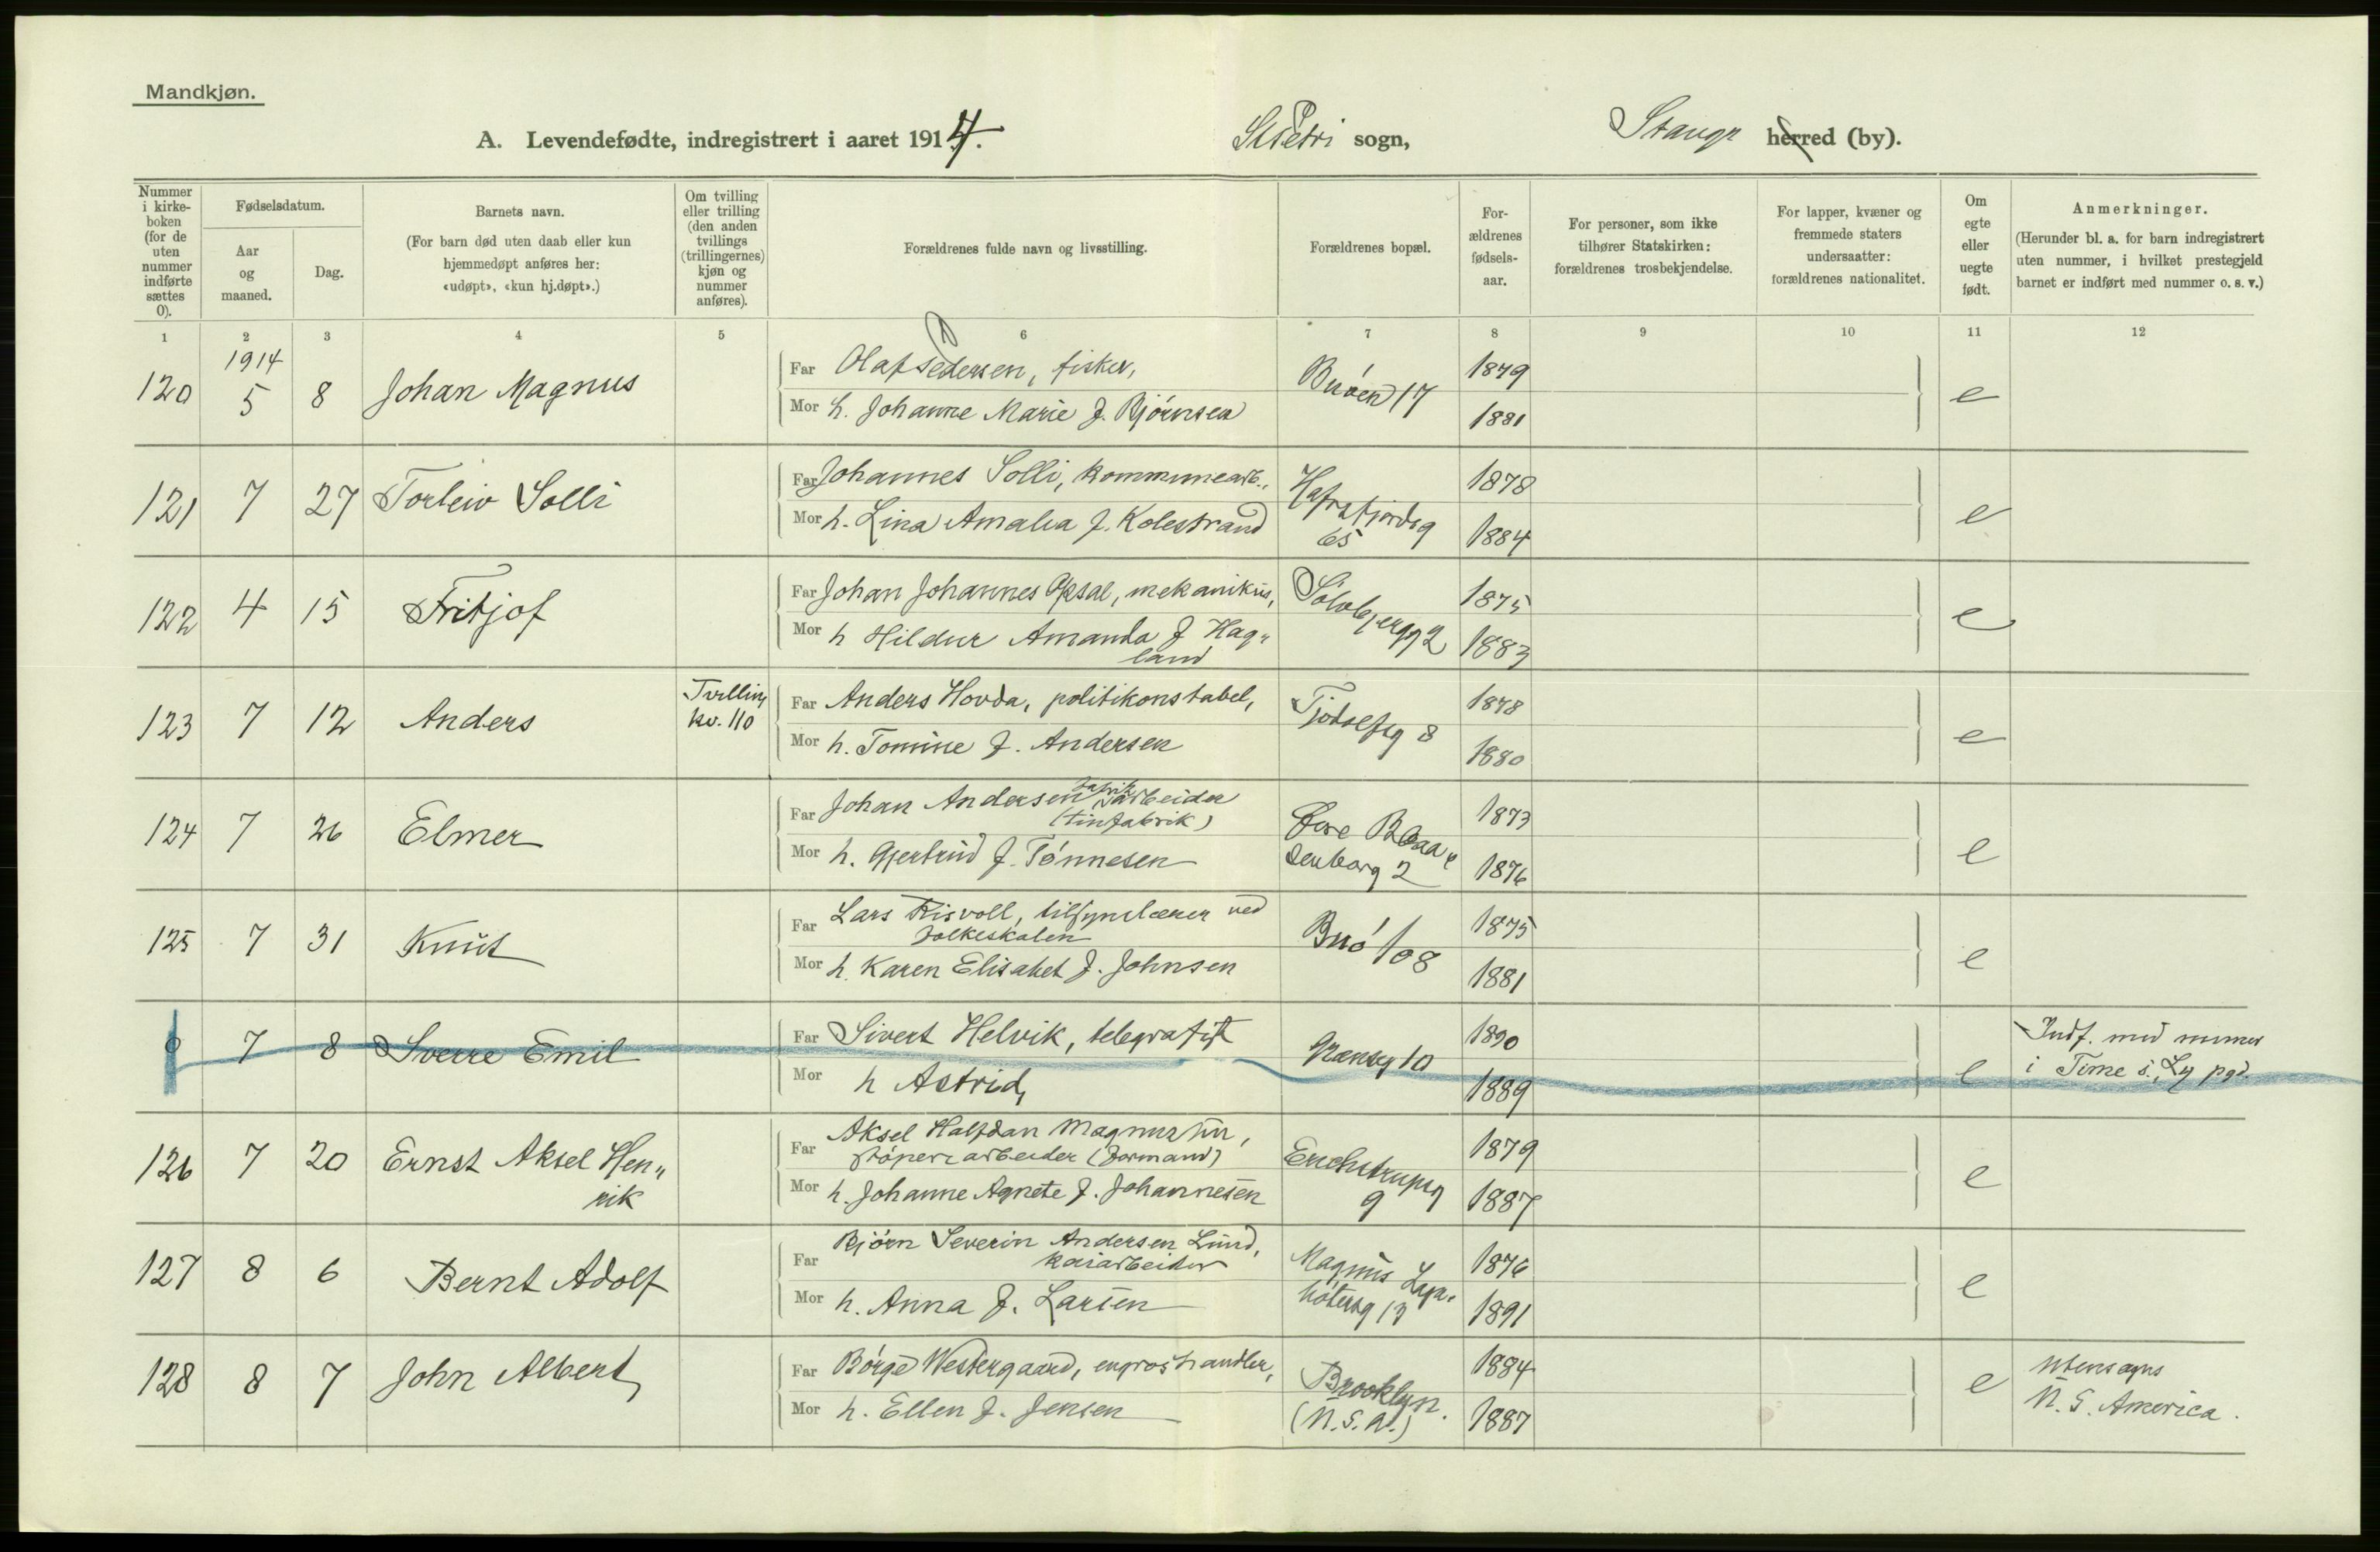 Mandkjøn.
A. Levendefødte, indregistrert i aaret 1914.
St Petri sogn, Stavgr herred (by).
Nummer i kirke-boken (for de uten nummer indførte sættes 0).
Fødselsdatum.
Aar og maaned.
Dag.
Barnets navn.
(For barn død uten daab eller kun hjemmedøpt anføres her: «udøpt», «kun hj.døpt».)
Om tvilling eller trilling (den anden tvillings (trillingernes) kjøn og nummer anføres).
Forældrenes fulde navn og livsstilling.
Forældrenes bopæl.
For-ældrenes fødsels-aar.
For personer, som ikke tilhører Statskirken: forældrenes trosbekjendelse.
For lapper, kvæner og fremmede staters undersaatter: forældrenes nationalitet.
Om egte eller uegte født.
Anmerkninger.
(Herunder bl. a. for barn indregistrert uten nummer, i hvilket prestegjeld barnet er indført med nummer o. s. v.)
1 2 3 4 5 6 7 8 9 10 11 12
1914
120 5 8 Johan Magnus Far Olaf Pedersen, fisker, Buøen 17 1879 e
Mor h. Johanne Marie f. Bjørnsen 1881
121 7 27 Torleiv Solli Far Johannes Solli, kommunearb., Hafrsfjordsg 65 1878 e
Mor h. Lina Amalia f. Kolestrand 1884
122 4 15 Fritjof Far Johan Johannes Opsal, mekanikus, Sølvbjergg 2 1875 e
Mor h Hildur Amanda f Hag" 1883
land
123 7 12 Anders Tvilling kv. 110 Far Anders Hovda, politikonstabel, Tjodolfsg 8 1878 e
Mor h. Tomine f. Andersen 1880
124 7 26 Elmer Far Johan Andersen fabrikarbeider (tinfabrik) Øvre Blaa" 1873 e
Mor h. Gjertrud f. Tønnesen 2 1876
125 7 31 Knut Far Lars Risvoll, tilsynslærer ved folkeskolen Buø 108 1875 e
Mor h. Karen Elisabet f. Johnsen 1881
0 7 8 Sverre Emil Far Sivert Helvik, telegrafist Grænseg 10 1890 e Indf. med numer
Mor h Astrid, 1889 i Time s., Ly pgd.
126 7 20 Ernst Aksel Hen" Far Aksel Halfdan Magnussen, 1879 e
rik støperiarbeider (formand) Erichstrupsg 9
Mor h. Johanne Agnete f. Johannesen 1887
127 8 6 Bernt Adolf Far Bjørn Severin Andersen Lund, kaiarbeider Magnus Laga" 1876 e
Mor h. Anna f. Larsen bøtersg 13 1891
128 8 7 John Albert Far Børge Westergaard, engroshandler, Brooklyn. 1884 e utensogns
Mor h. Ellen f. Jensen (N.S.A.) 1887 N. S. America.